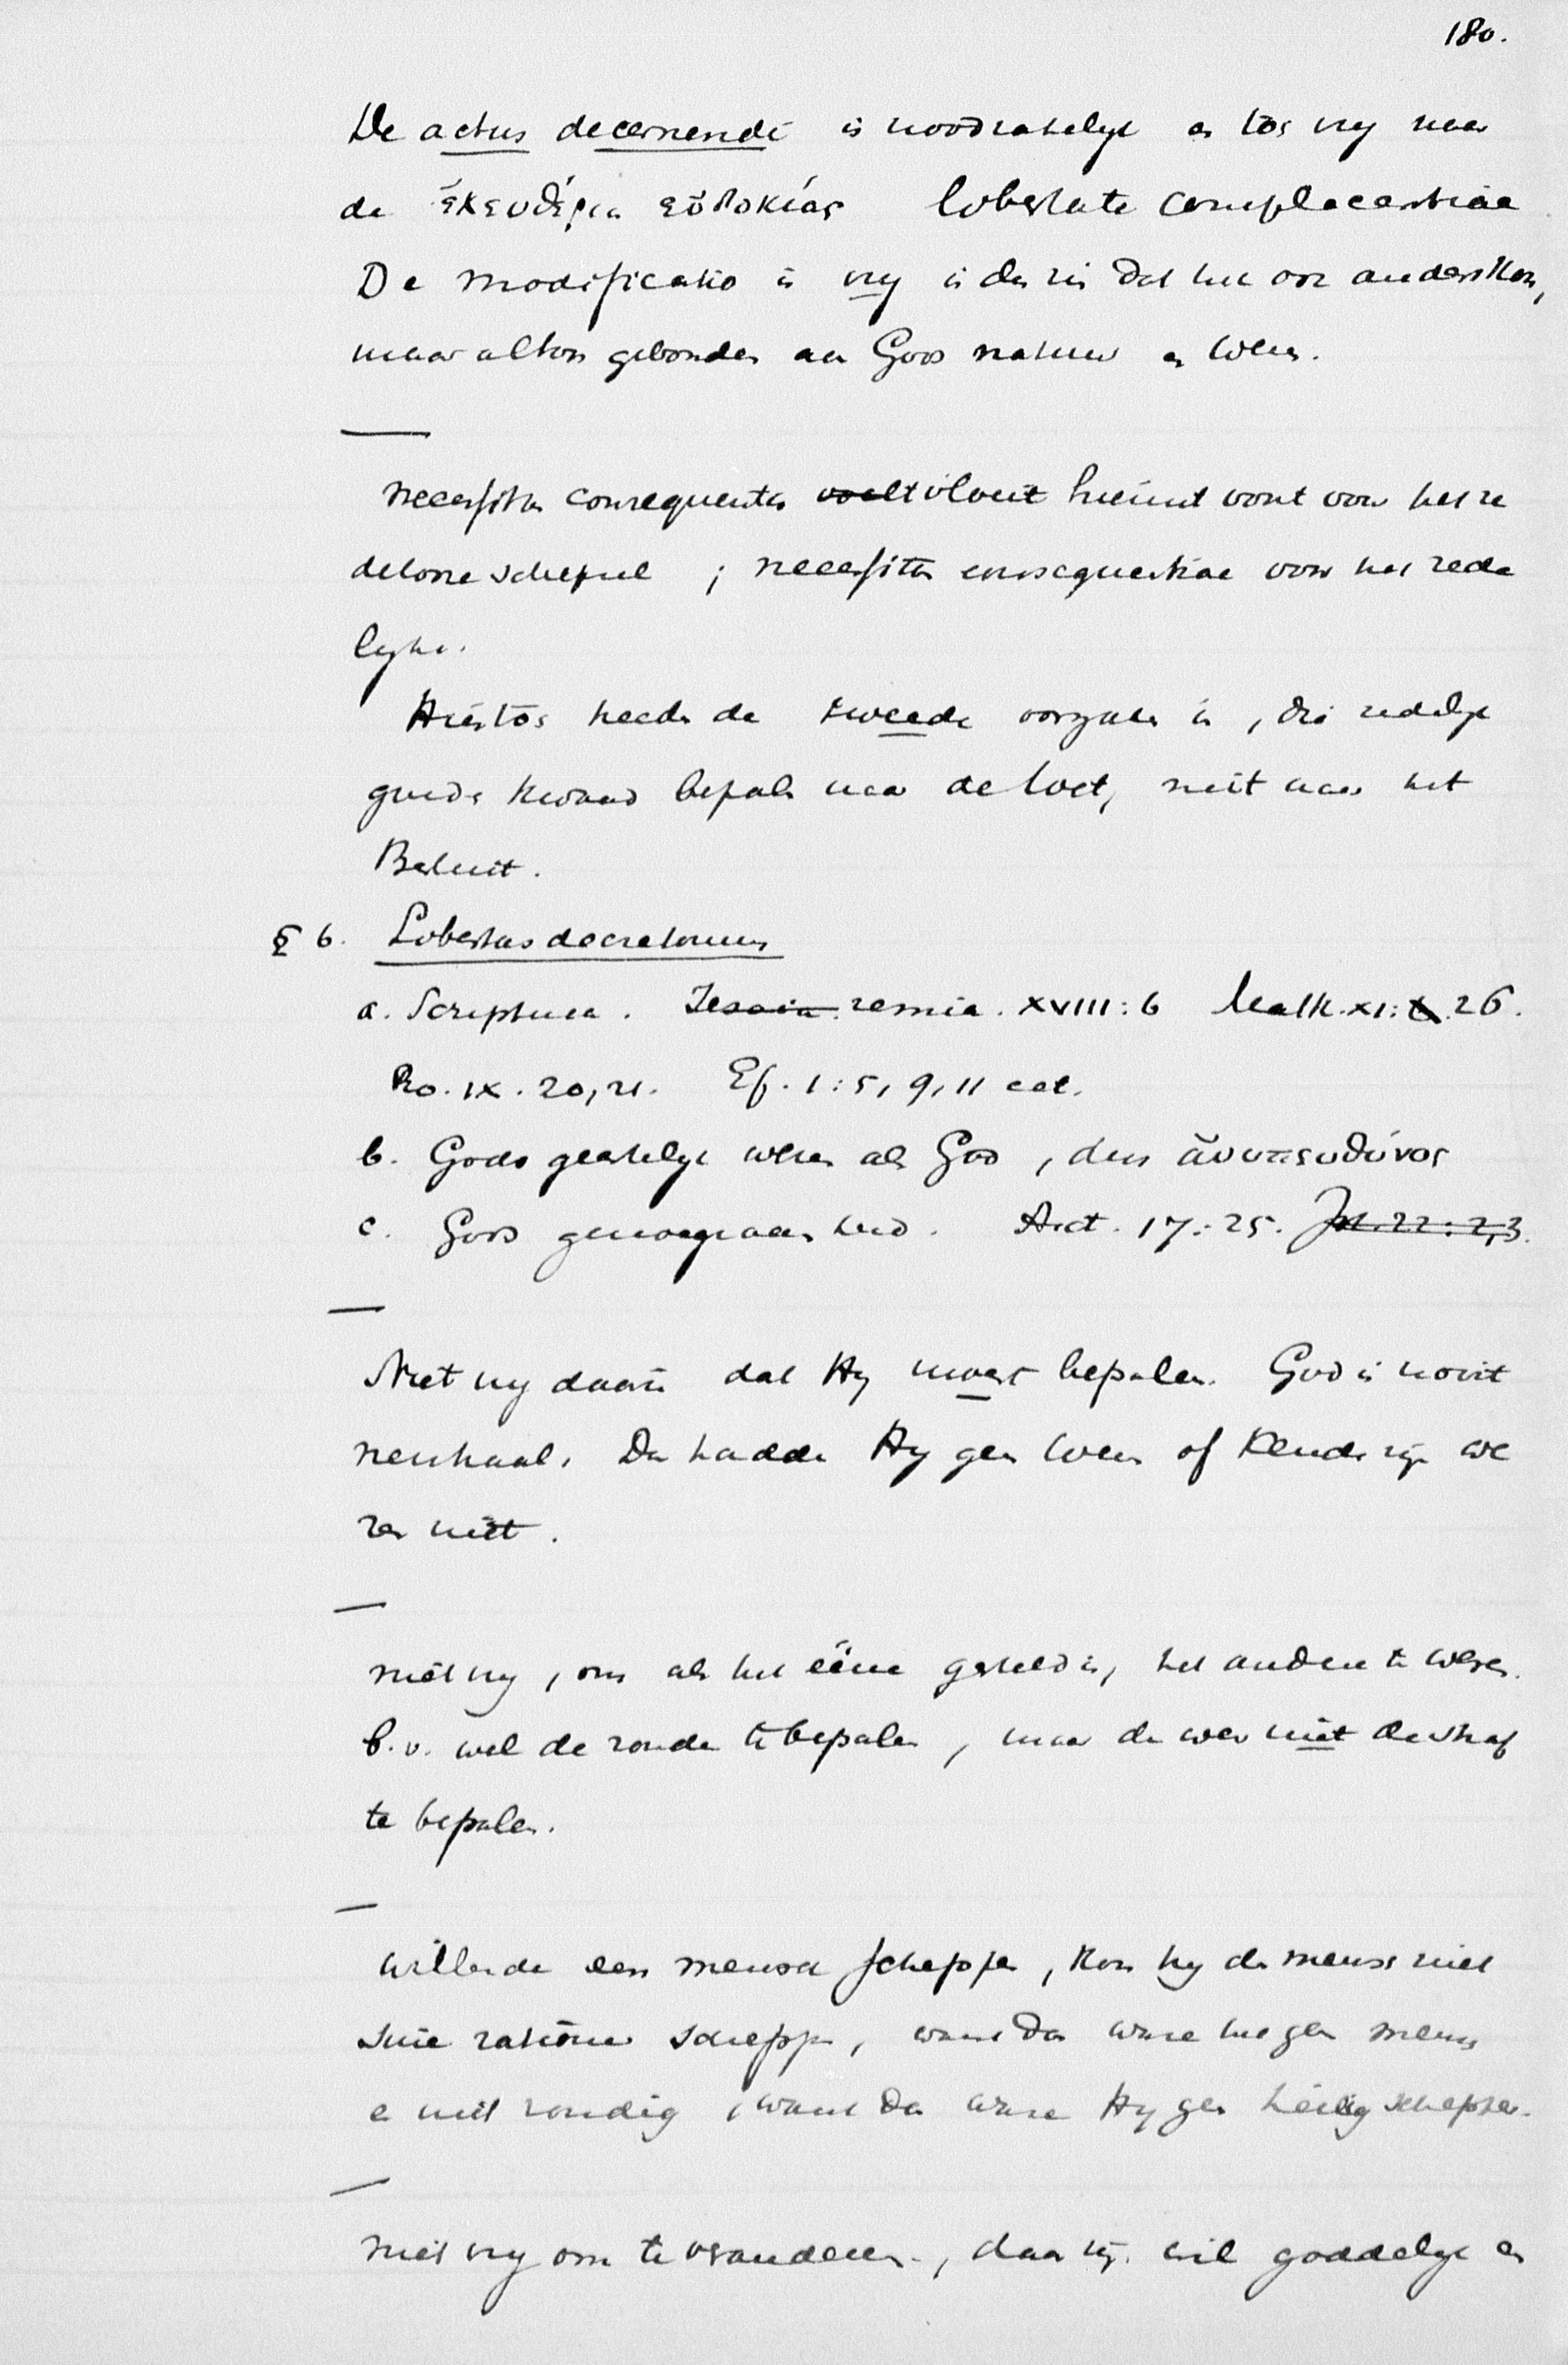 180.
De actus decernendi is noodzakelijk en tos vrij naar
de ἐλευθέρια εὐδοκίας libertate complacentiae
De modificatio is vrij in den zin dat het ook anders kon,
maar altoos gebonden aan Gods natuur en wezen.
Necessitas consequentis vloeit hieruit voort voor het re
delooze schepsel ; necessitas consequentiae voor het rede
lijke.
Hiertos treedt de tweede oorzaak in, die redelijk
goed & kwaad bepaalt naar de wet, niet naar het
Besluit.
§ 6. Libertas decretorum
a. Scriptura. Jesaia remia. XVIII:6 Matth. XI: 26.
Ro. IX. 20, 21. Ef. 1:5, 9, 11 cet.
b. Gods geestelijk wezen als God, den ἀνυπευθύνος
c. Gods genoegzaamheid. Act. 17:25. Job. 22:2,3.
Niet vrij daarin dat Hij moest bepalen. God is nooit
neutraal. Dan hadde Hij geen wezen of kende zijn we
zen niet.
niet vrij, om als het ééne gesteld is, het andere te weren.
b.v. wel de zonde te bepalen, maar dan weer niet de straf
te bepalen.
Willende een mensch scheppen, kon hij den mensch niet
sine ratione scheppen, want dan ware het geen mensch
en niet zondig, want dan ware Hij geen heilig schepper.
niet vrij om te veranderen, daar zijn wil goddelijk en